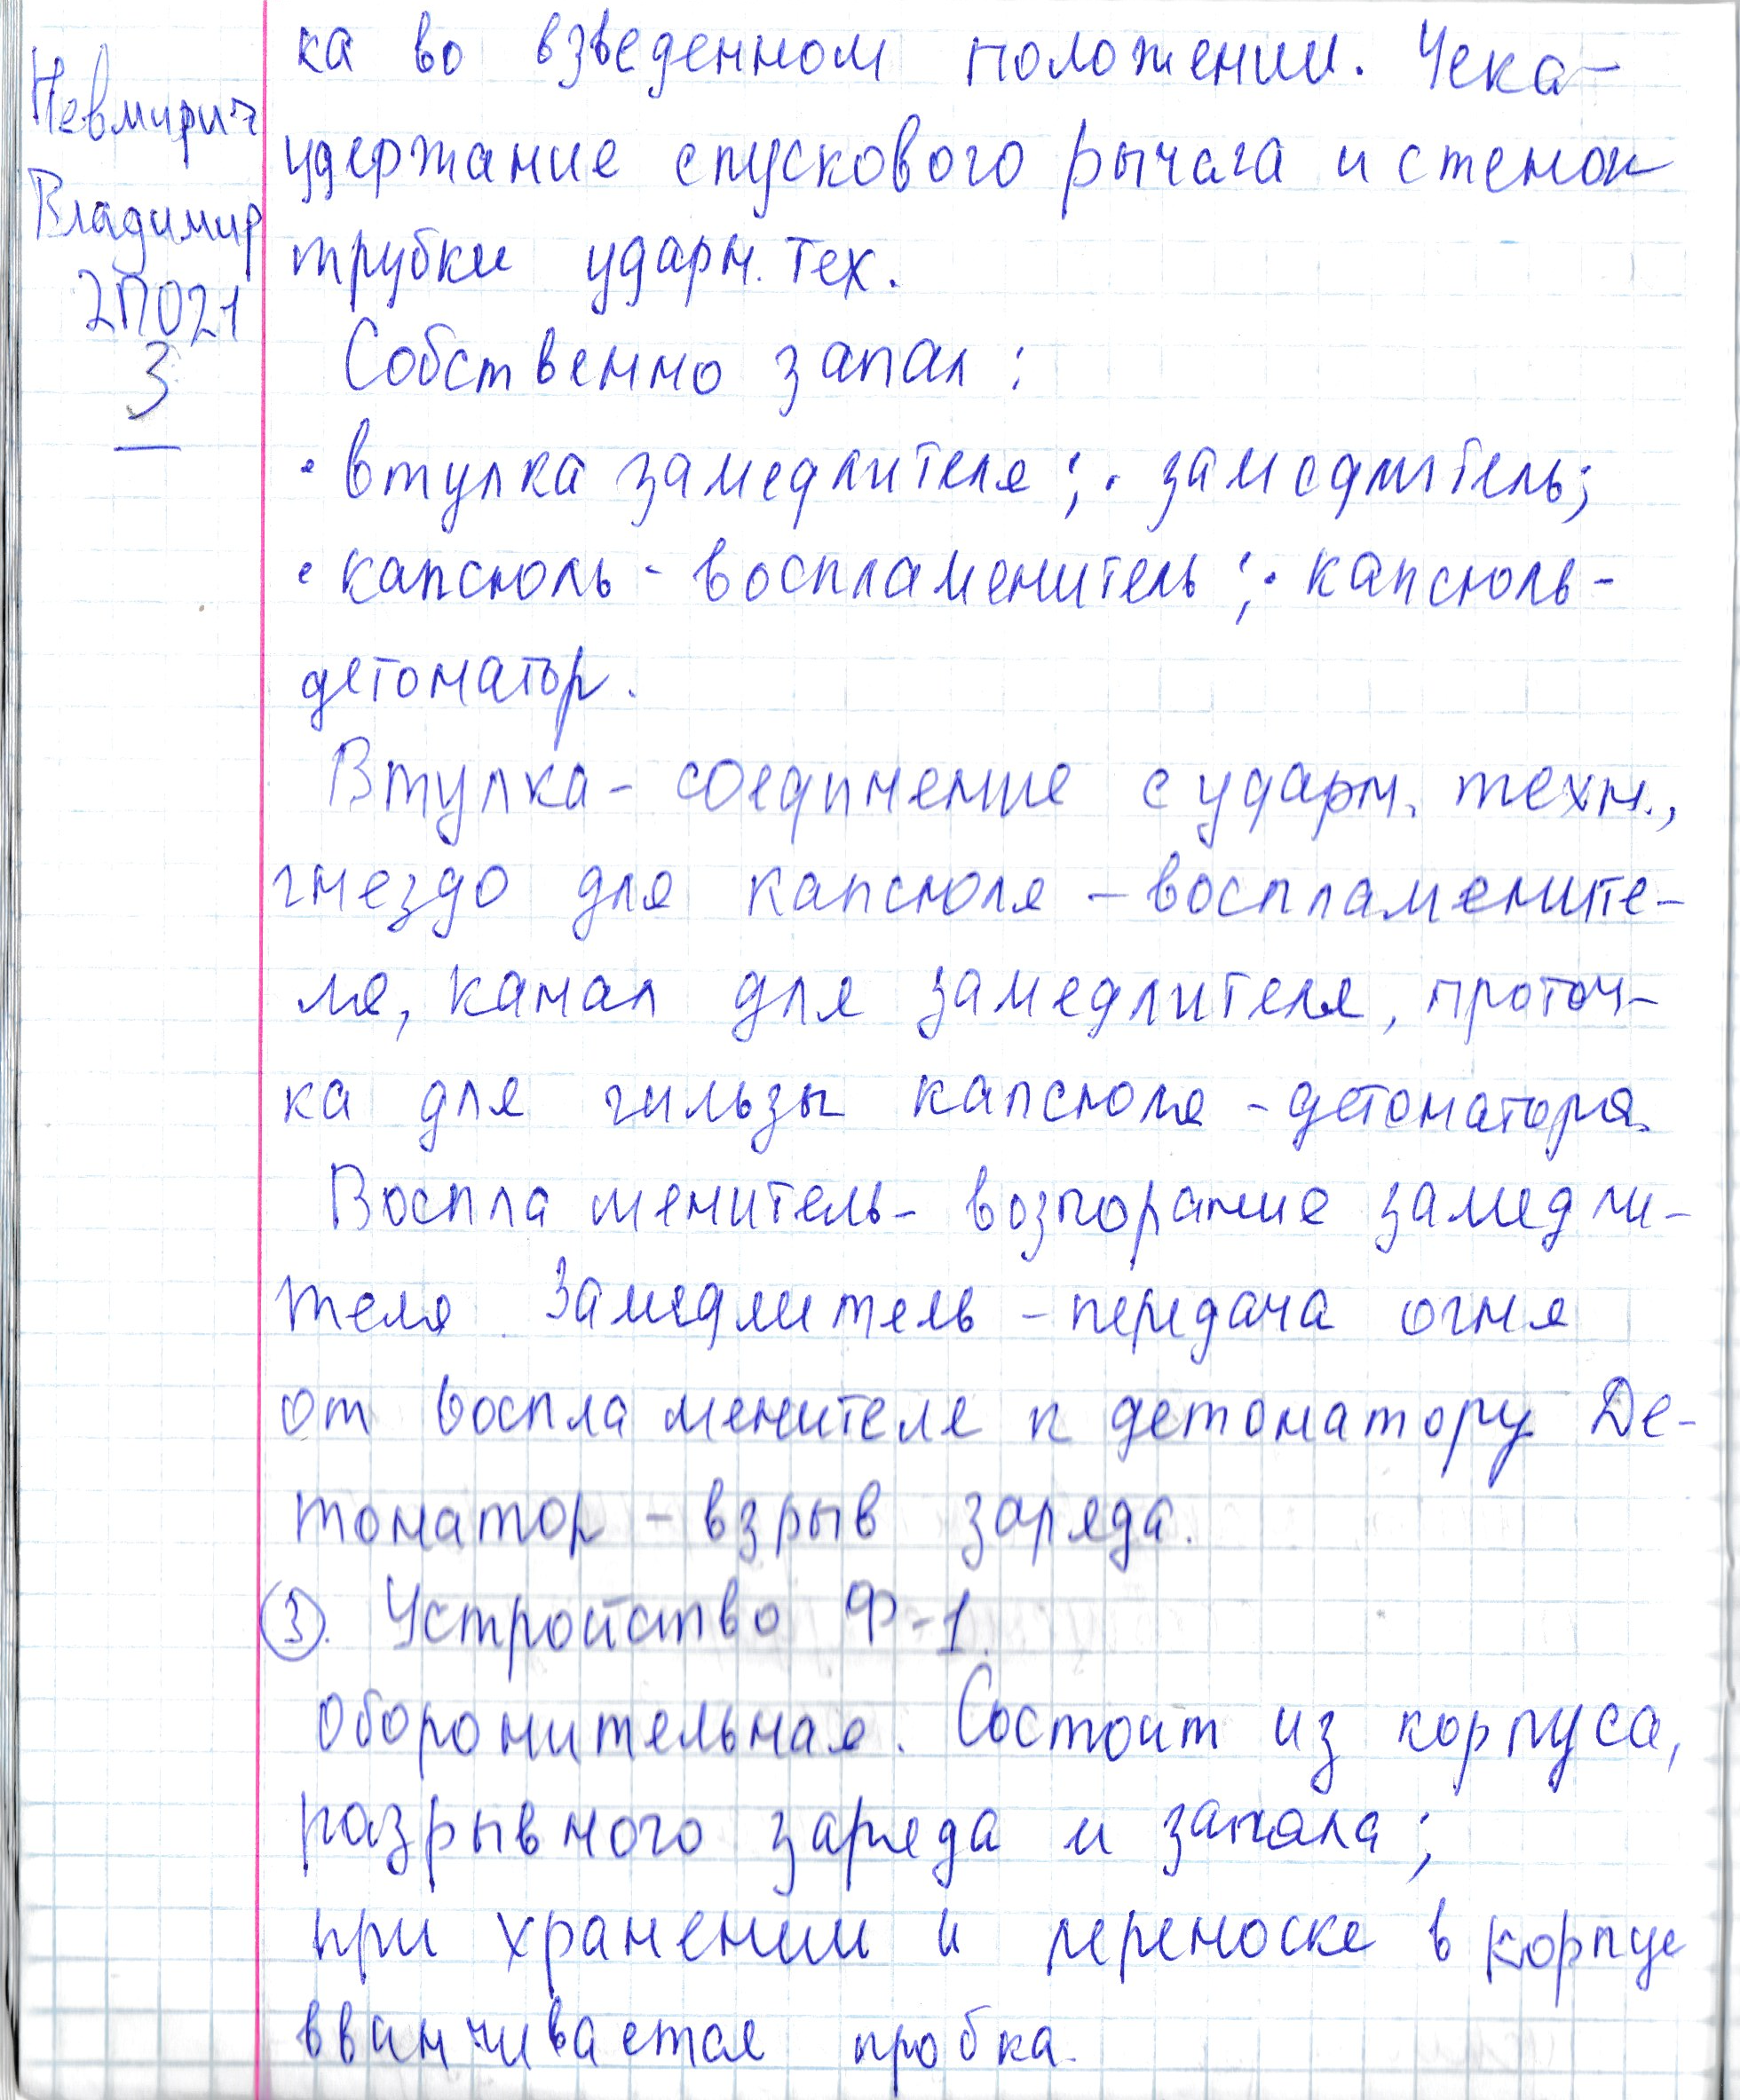 Невмирич
Владимир
2П021
3
ка во взведенном положении. Чека-
удержание спускового рычага и стенок
трубки ударн. тех.
Собственно запал:
• втулка замедлителя; • замедлитель;
• капсюль - воспламенитель; • капсюль-
детонатор.
Втулка - соединение с ударн. техн.,
гнездо для капсюля - воспламените-
ля, канал для замедлителя, проточ-
ка для гильзы капсюля - детонатора.
Воспламенитель - возгорание замедли-
теля. Замедлитель - передача огня
от воспламенителя к детонатору Де-
тонатор - взрыв заряда.
3. Устройство Ф-1.
Оборонительная. Состоит из корпуса,
разрывного заряда и запала;
при хранении и переноске в корпус
ввинчивается пробка.